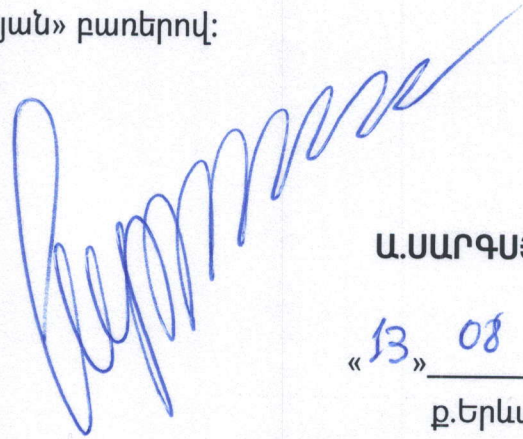 յան» բառերով:
Ա.ՍԱՐԳՍ
«13» 08
ք.Երև